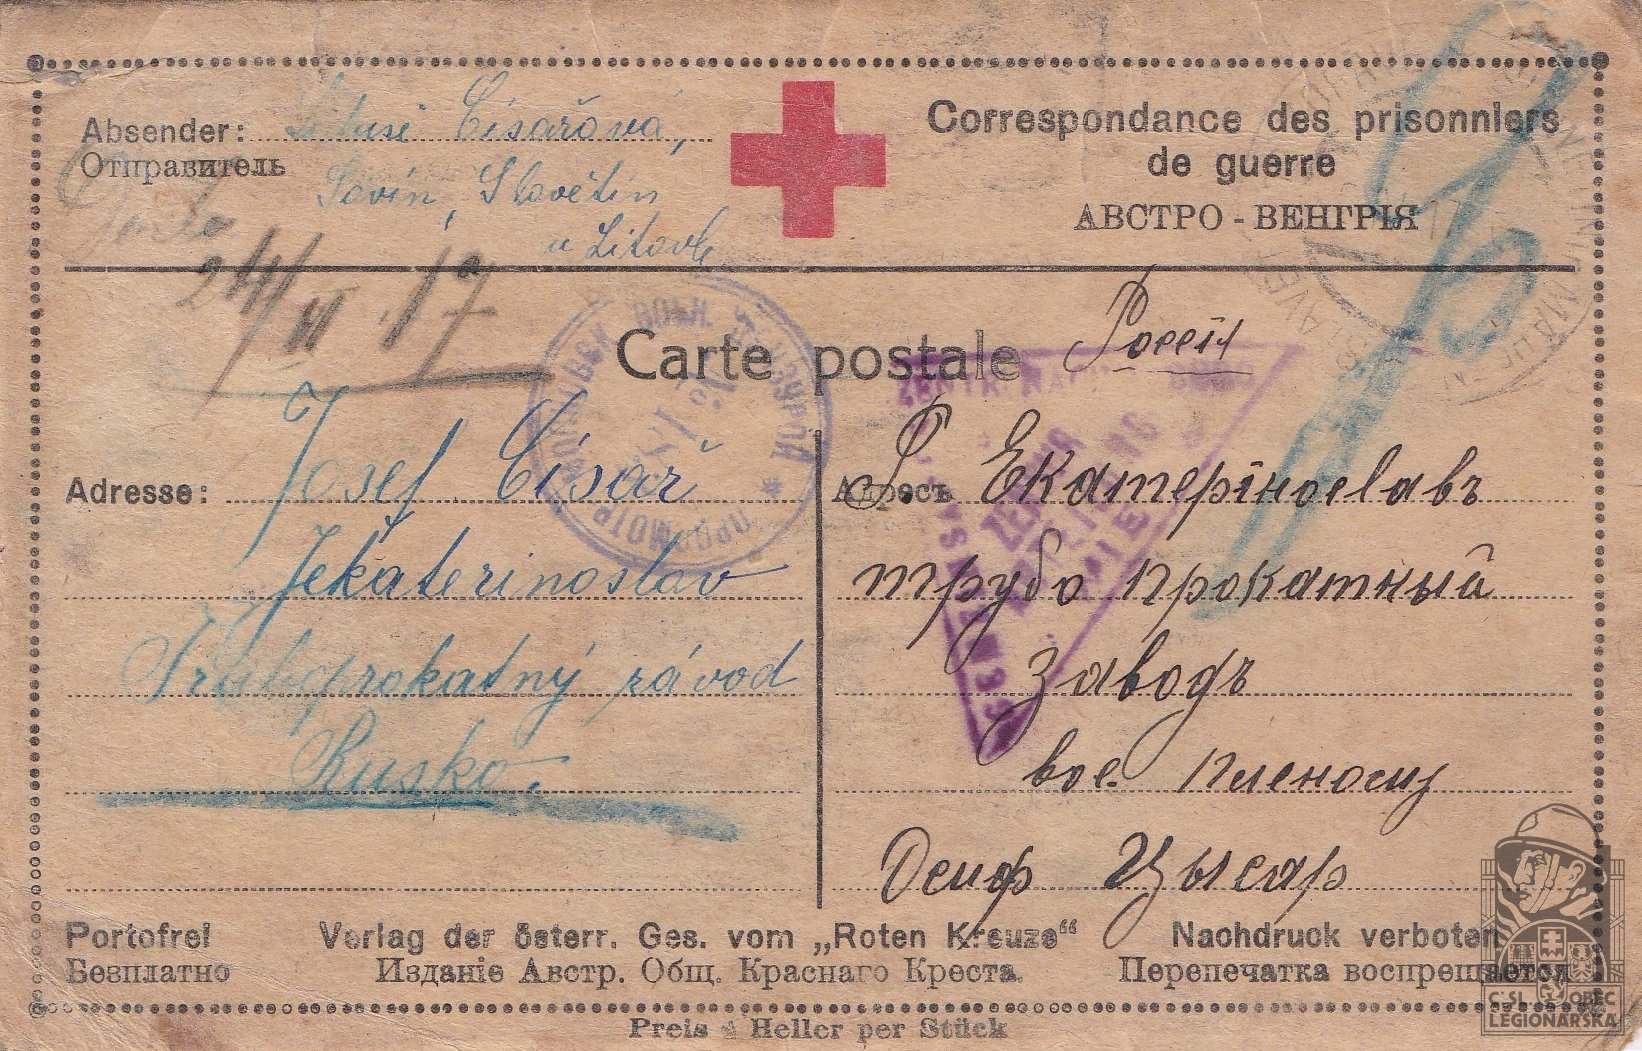 Absender: Císařová,
Отправитель
Slavětín
u Litovle
Correspondance des prisonniers
de guerre
АВСТРО - ВЕНГРІЯ
24/VI 17
Carte postale
Adresse: Josef Císař
Jekaterinoslav
Truboprokatný závod
Rusko.
Адресъ Г. Екатерінославъ
трубо прокатный
заводъ
вое. пленому
Осиф Цысар
Portofrei
Безплатно
Verlag der österr. Ges. vom „Roten Kreuze“
Изданіе Австр. Общ. Краснаго Креста.
Nachdruck verboten
Перепечатка воспрещается
Preis Heller per Stück
ČSL. OBEC
LEGIONÁŘSKÁ